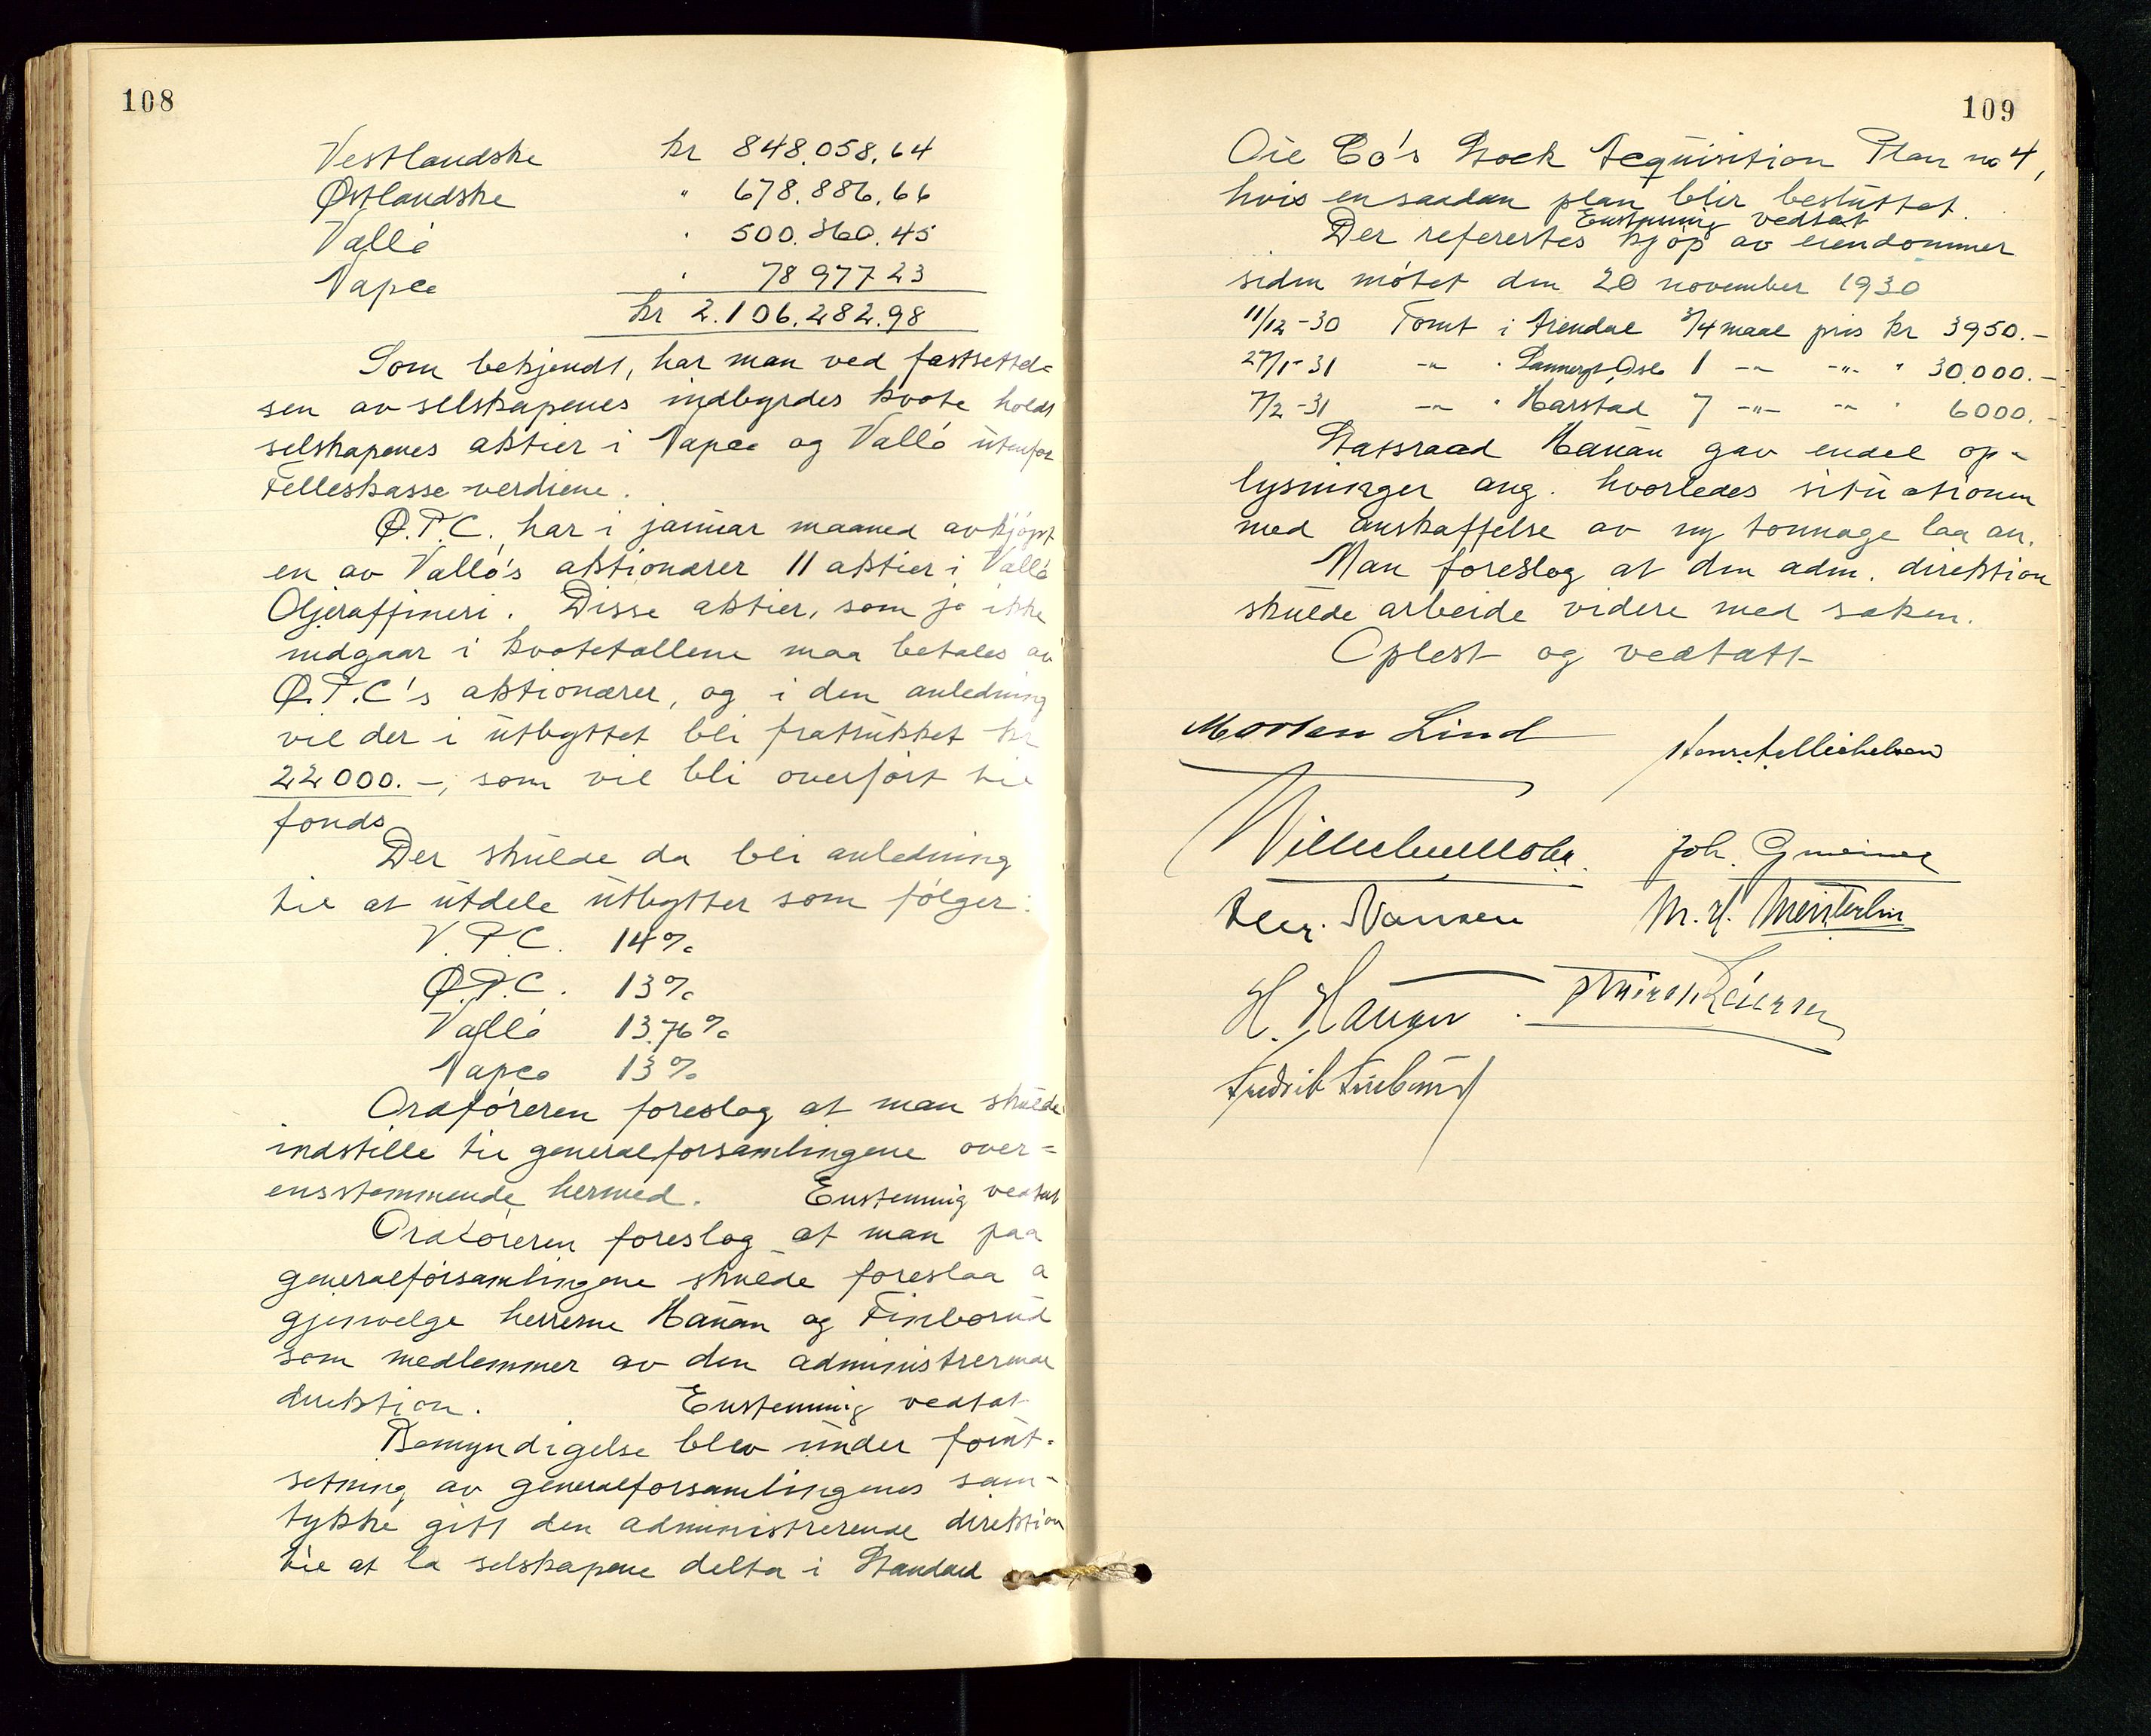 108
Vestlandske kr 848.058.64
Østlandske " 678.886.66
Vallö " 500.360.45
Napco " 78 977 23
kr 2.106.282.98
Som bekjendt, har man ved fastsettel=
sen av selskapenes indbyrdes kvote holdt
selskapenes aktier i Napco og Vallö utenfor
Felleskasse-verdiene.
Ø.P.C. har i januar maaned avkjöpt
en av Vallö's aktionærer 11 aktier i Vallö
Oljeraffineri. Disse aktier, som jo ikke
medgaar i kvotetallene maa betales av
Ø.P.C's aktionærer, og i den anledning
vil der i utbyttet bli fratrukket kr
22000.-, som vil bli overfört til
fonds
Der skulde da bli anledning
til at utdele utbytter som fölger:
V.P.C. 14%
Ø.P.C. 13%
Vallö 13.76%
Napco 13%
Ordföreren foreslog at man skulde
indstille til generalforsamlingene over=
ensstemmende hermed. Enstemmig vedtat
Ordföreren foreslog at man paa
generalforsamlingene skulde foreslaa a
gjenvelge herrerne Hauan og Finborud
som medlemmer av den administrerende
direktion. Enstemmig vedtat
Bemyndigelse blev under forut-
setning av generalforsamlingenes sam-
tykke gitt den administrerende direktion
til at la selskapene delta i Standard
109
Oil Co's Stock Acquisition Plan no 4,
hvis en saadan plan blir besluttet.
Enstemmig vedtat
Der refertes kjöp av eiendommer
siden mötet den 20 november 1930
11/12-30 Tomt i Arendal 3/4 maal pris kr 3950.-
27/1-31 -"- " Oslo 1 -"- -"- " 30.000.-
7/2-31 -"- " Harstad 7 -"- -"- " 6000.-
Statsraad Hauan gav endel op-
lysninger ang. hvorledes situationen
med anskaffelse av ny tonnage laa an.
Man foreslog at den adm. direktion
skulde arbeide videre med saken.
Oplest og vedtatt
Morten Lind
Wilhelm Mohr. Joh. Gmeiner
Aler. Nansen M. H. Meisterlin
H. Hauan
Fredrik Finborud